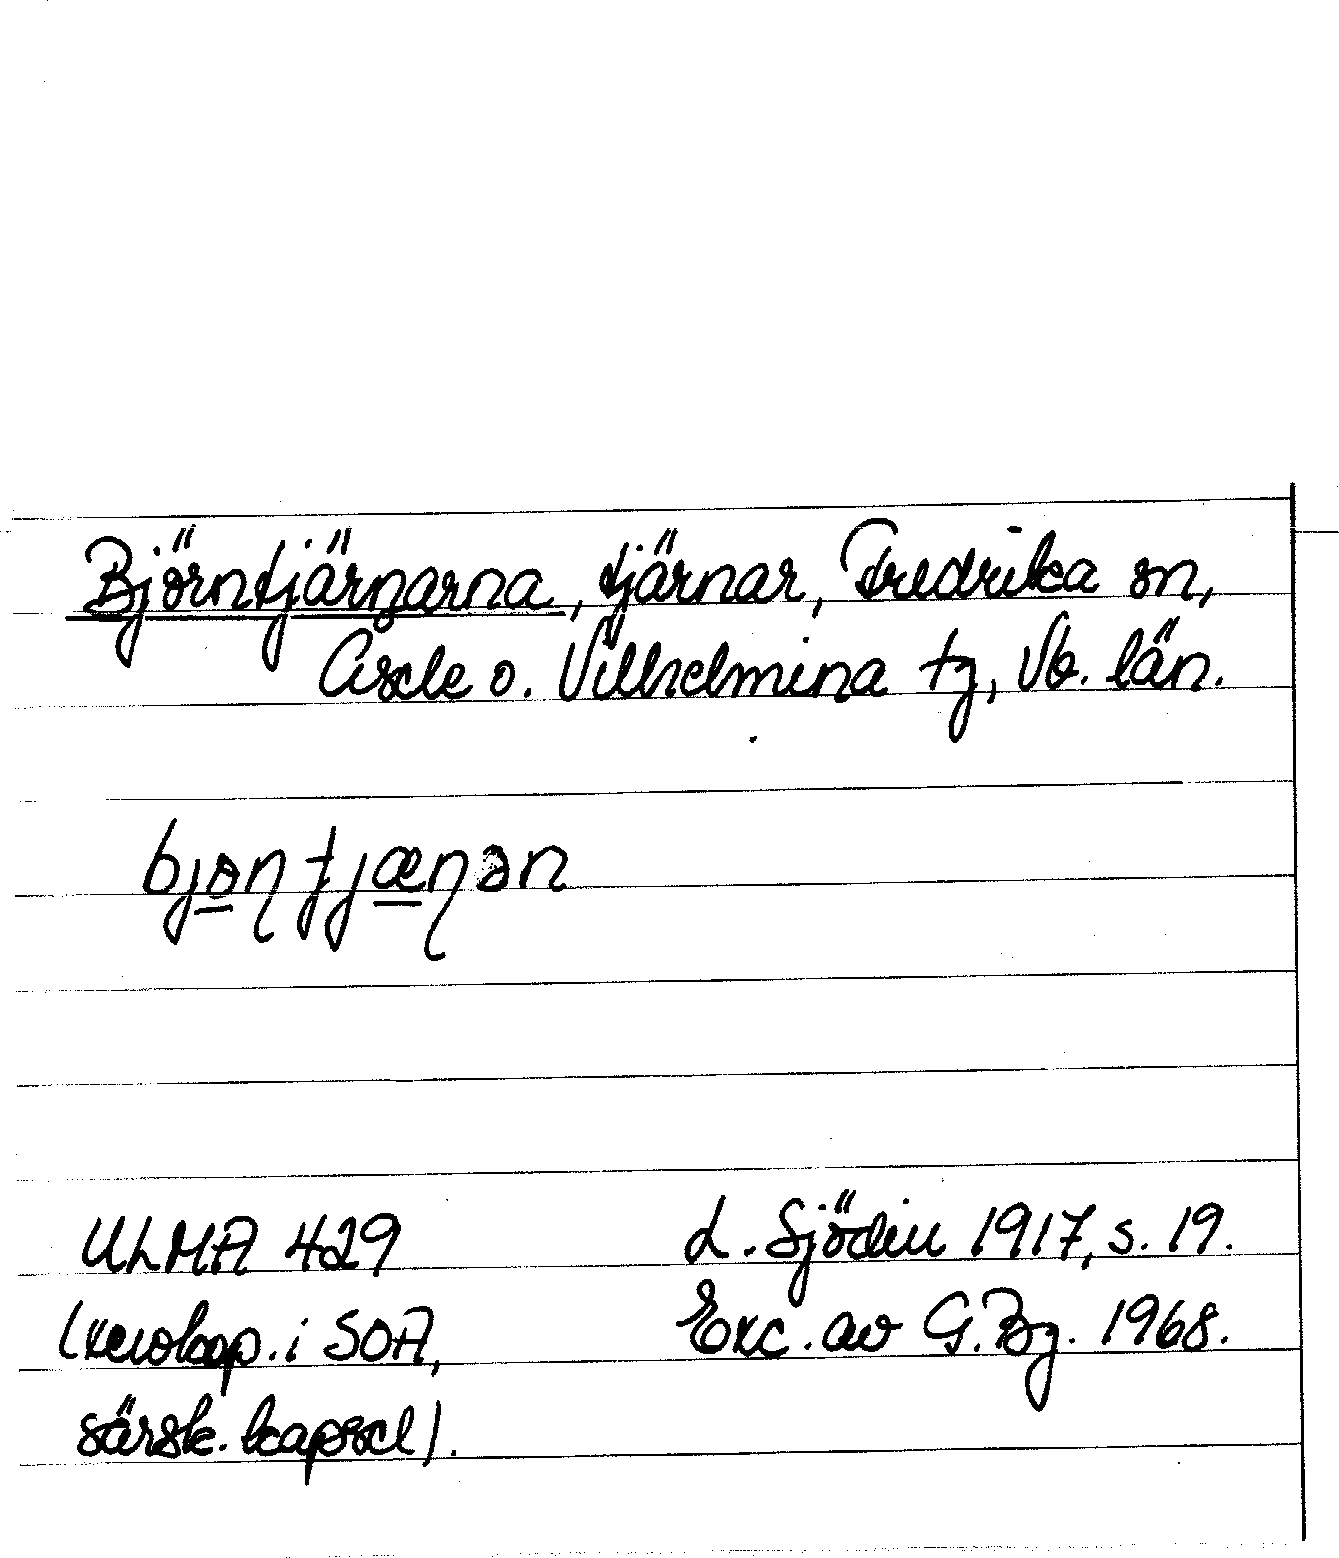 Björntjärnarna, tjärnar, Fredrika sn,
Åsele o. Vilhelmina tg, Vb. län.
bjøɳ tjæɳən
ULMA 429
(xerokop. i SOA,
särsk. kapsel).
L. Sjödin 1917, s. 19.
Exc. av G. Bg. 1968.